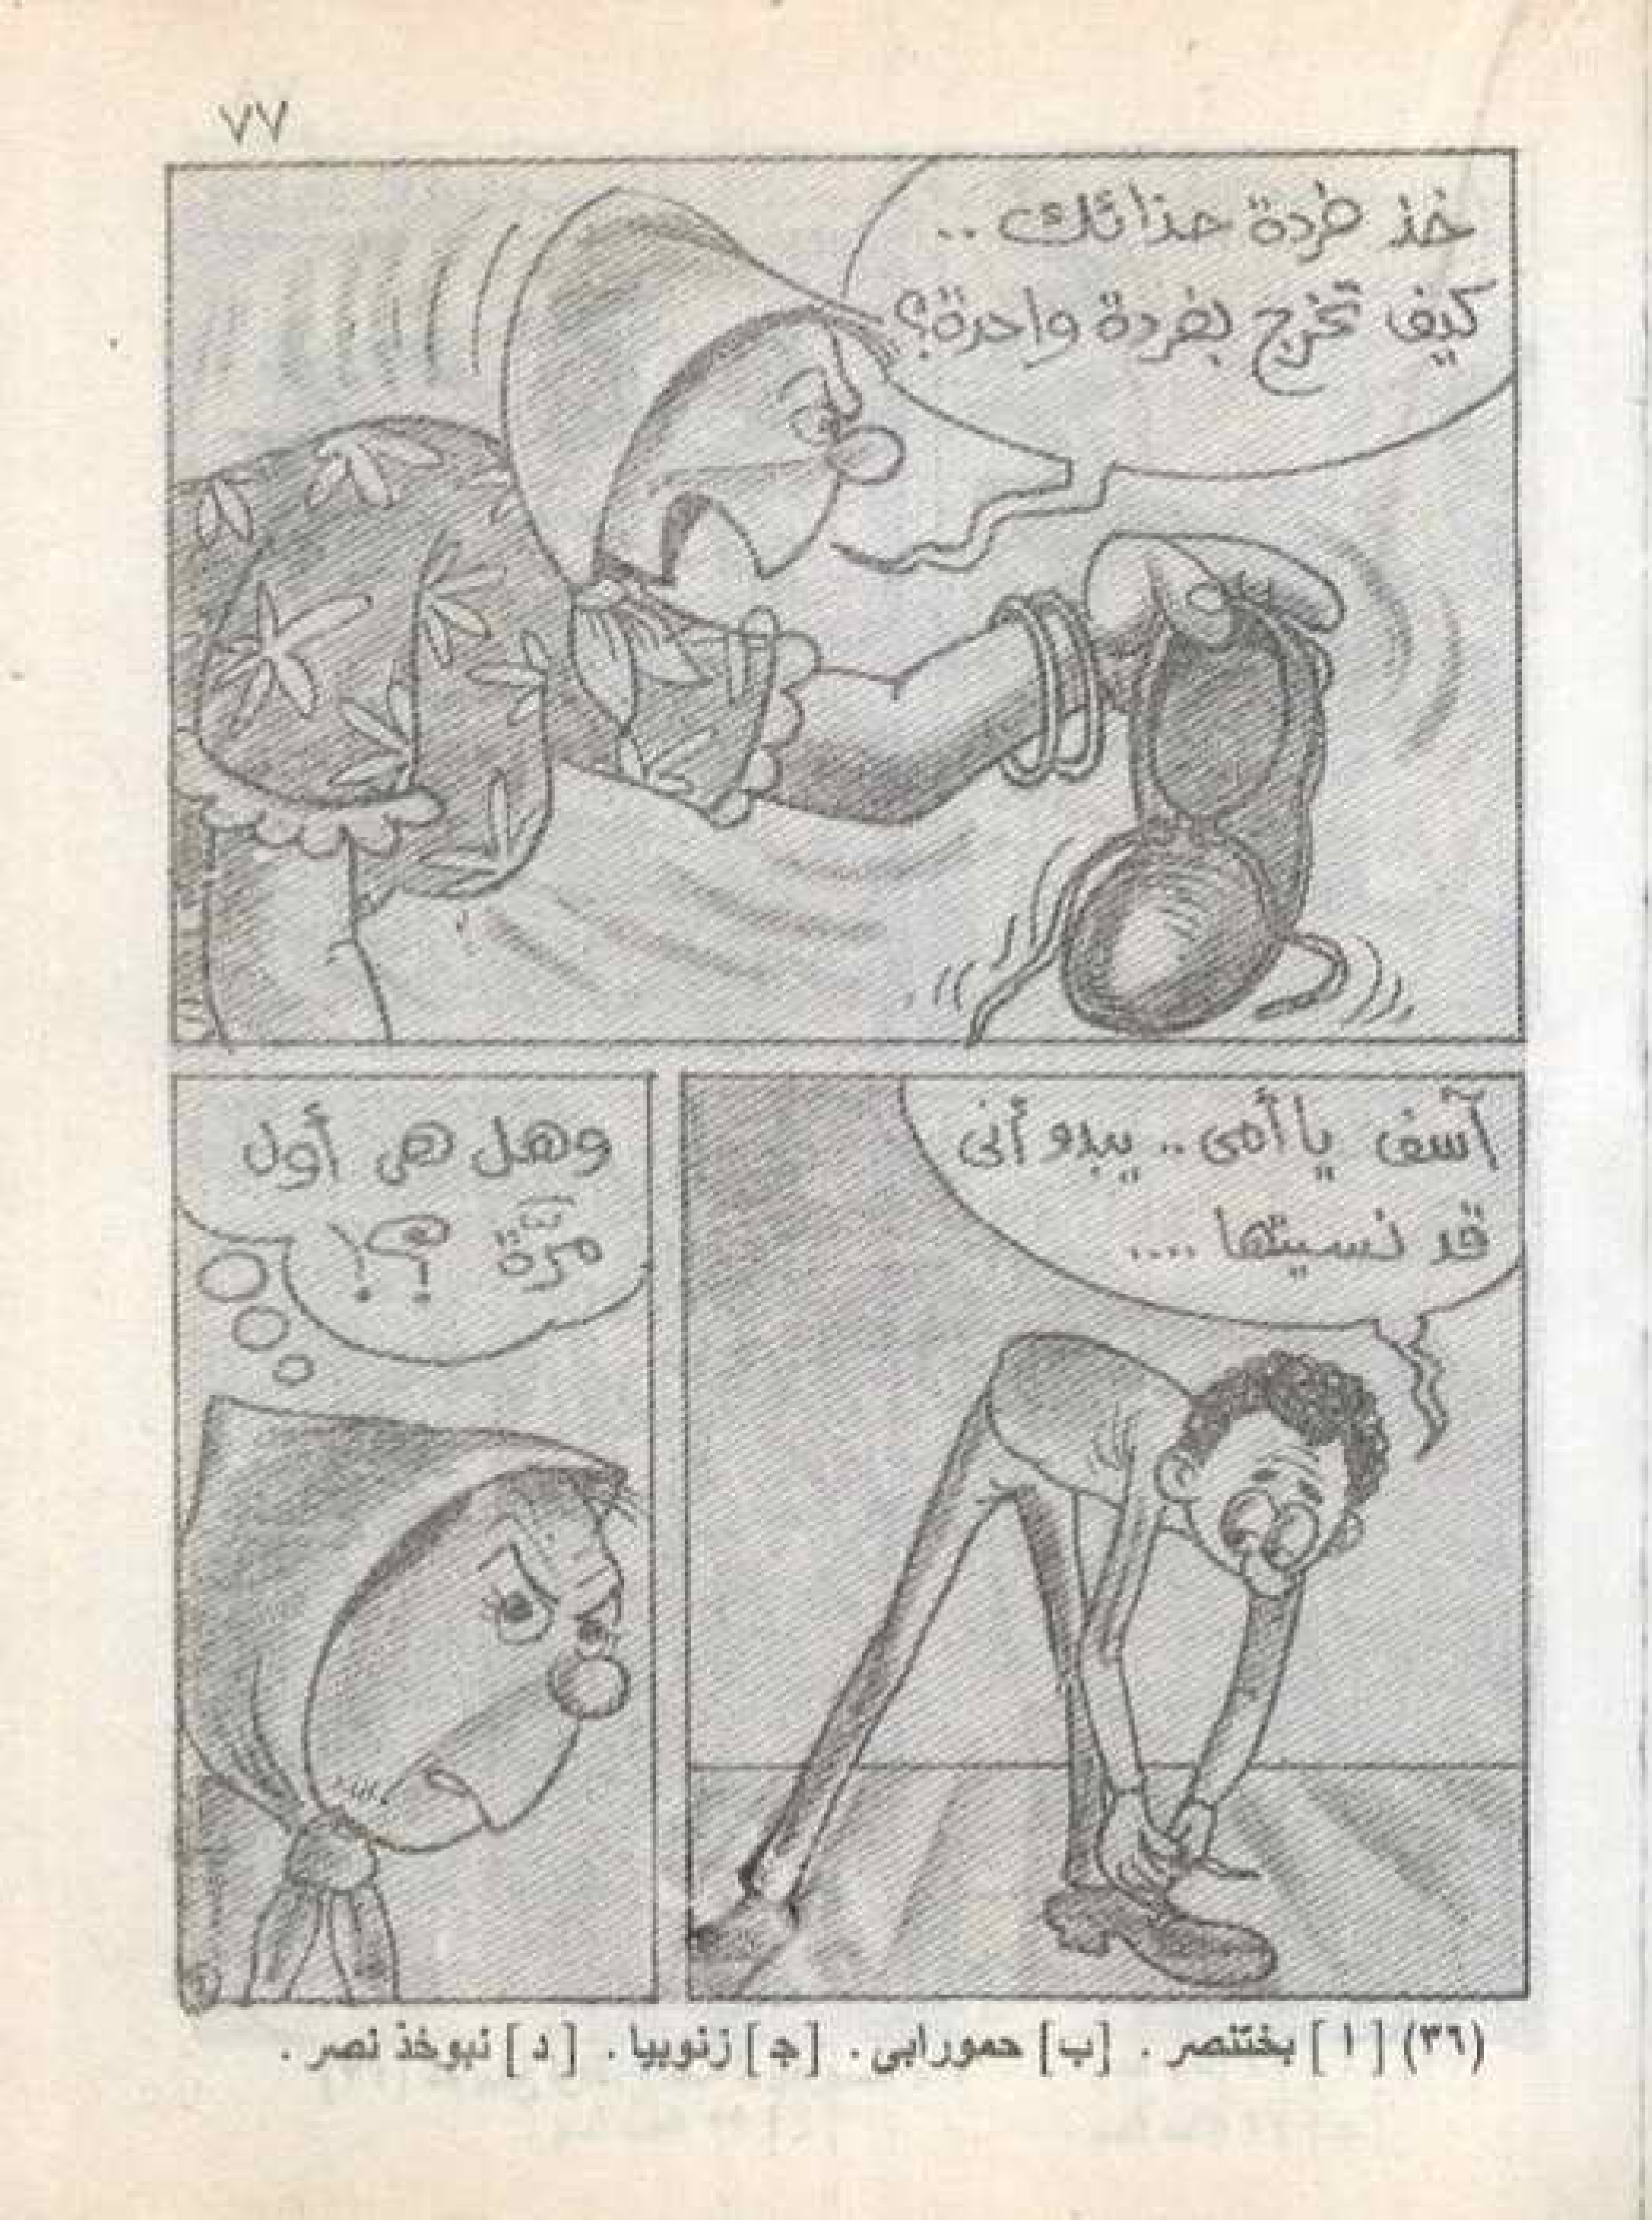 ٧٧
خذ فردة حذائك ..
كيف تخرج بفردة واحدة؟
آسف يا أمى .. يبدو أنى
قد نسيتها ....
وهل هى أول
مرّة ؟!
(٣٦) [ ا ] بختنصر . [ب] حمورابى . [ج] زنوبيا . [ د ] نبوخذ نصر .